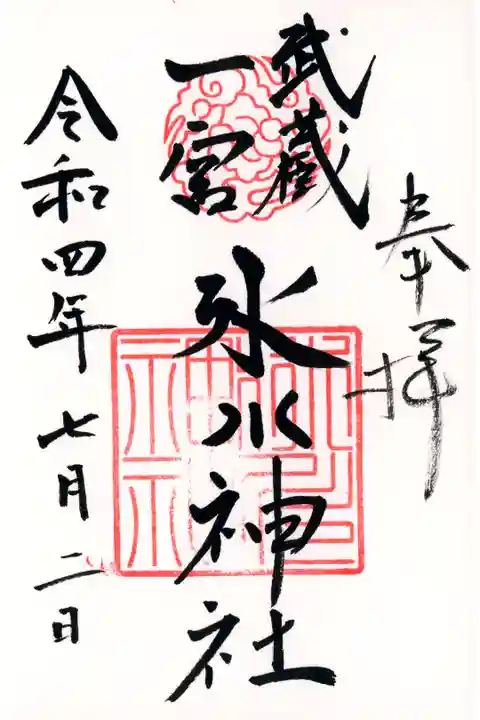 奉拝
武蔵
一宮
氷川神社
令和四年七月二日